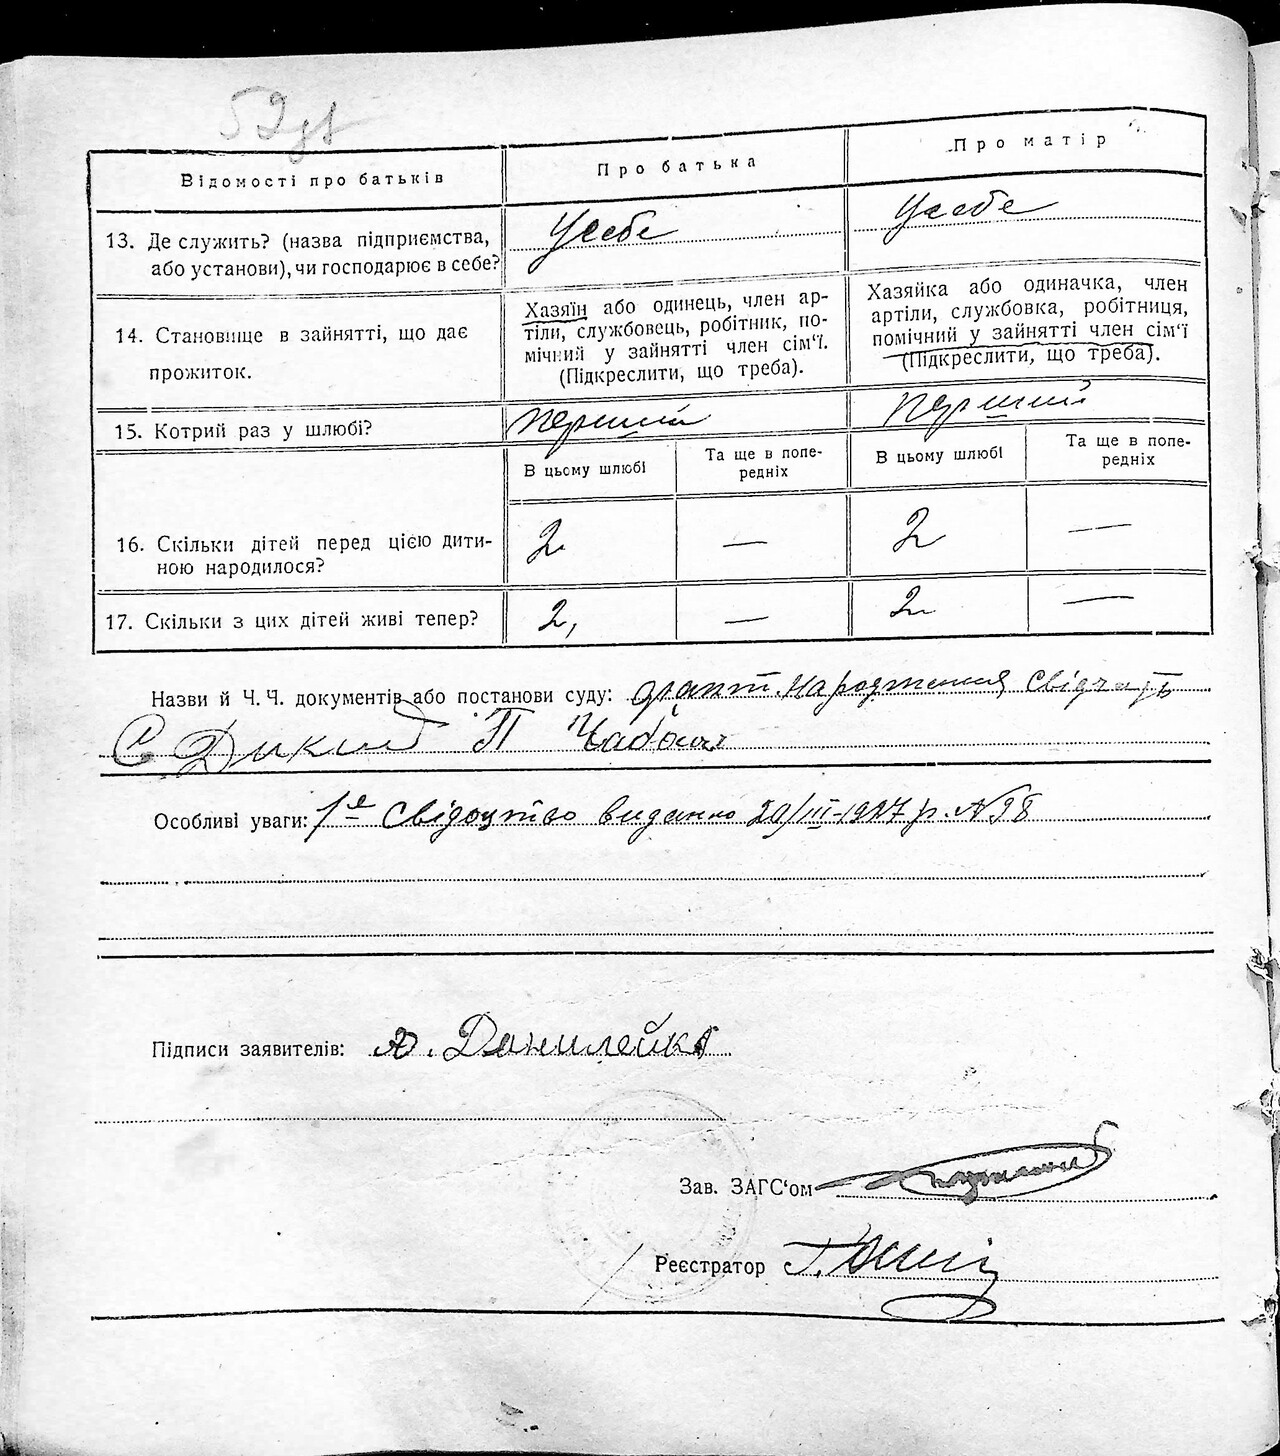 52
Відомості про батьків
Про батька
Про матір
13. Де служить? (назва підприємства,
або установи), чи господарює в себе?
Усебе
Усебе
14. Становище в зайнятті, що дає
прожиток.
Хазяїн або одинець, член ар-
тіли, службовець, робітник, по-
мічний у зайнятті член сім'ї.
(Підкреслити, що треба).
Хазяйка або одиначка, член
артіли, службовка, робітниця,
помічний у зайнятті член сім'ї
(Підкреслити, що треба).
15. Котрий раз у шлюбі?
перший
перший
В цьому шлюбі
Та ще в попе-
редніх
В цьому шлюбі
Та ще в попе-
редніх
16. Скільки дітей перед цією дити-
ною народилося?
2
—
2
—
17. Скільки з цих дітей живі тепер?
2,
—
2
—
Назви й Ч. Ч. документів або постанови суду: факт народження свідчать
С Дикий П Чабан
Особливі уваги: 1е Свідоцтво видано 20/III-1927 р. N 98
Підписи заявителів: Данилейко
Зав. ЗАГС'ом
Реєстратор Г.